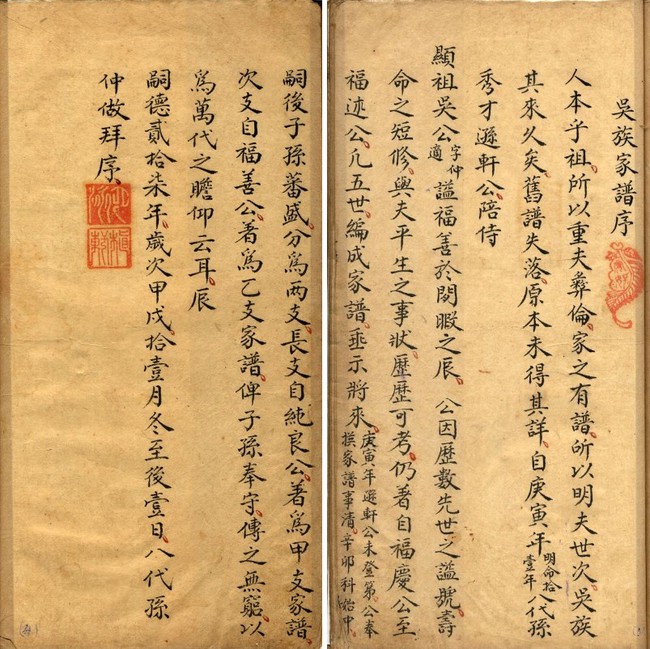 吳族家譜序
人本乎祖所以重夫彝倫家之有譜所以明夫世次吳族
其來久矣舊譜失落原本未得其詳自庚寅年明命拾壹年八代孫
秀才遜軒公陪侍
顯祖吳公字仲適謚福善於閒暇之辰 公因歷數先世之謚號壽
命之短修與夫平生之事狀歷歷可考仍著自福慶公至
福述公凡五世編成家譜垂示將來庚寅年遜軒公未登第公奉撰家譜事清辛卯科始中
嗣後子孫蕃盛分爲兩支長支自純良公著爲甲支家譜
次支自福善公著爲乙支家譜俾子孫奉守傳之無窮以
爲萬代之瞻仰云耳辰
嗣德貳拾柒年歲次甲戌拾壹月冬至後壹日八代孫
仲做拜序